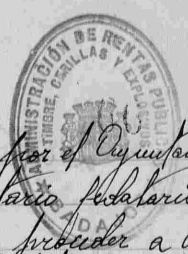 ADMINISTRACIÓN DE RENTAS PÚBLIC
TIMBRE, CERILLAS Y EXPLOSIVOS
BADAJO
por el Ayuntam
tario fedatario
proceder a